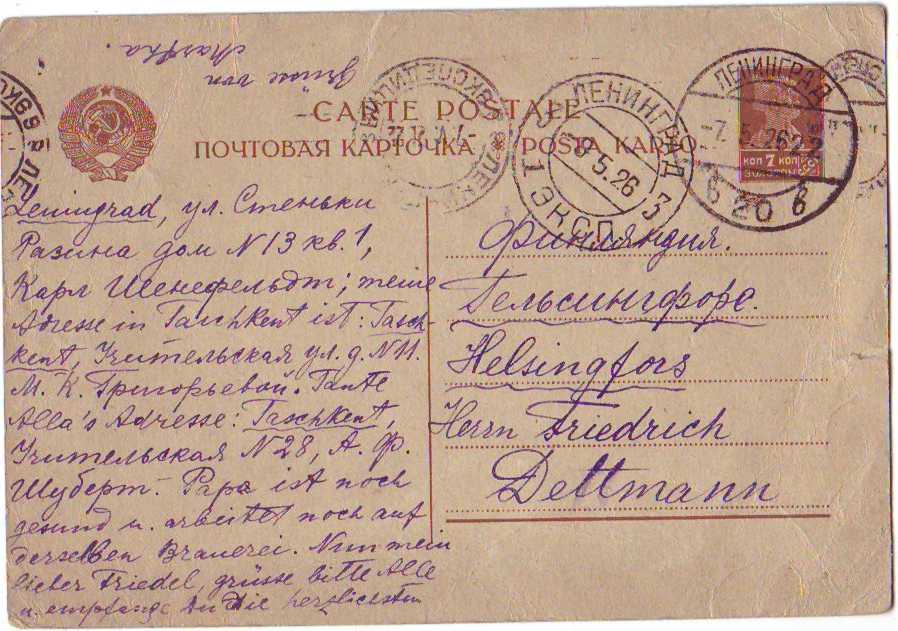 Grüsse von
Martha.
CARTE POSTALE
ПОЧТОВАЯ КАРТОЧКА * POŜTA KARTO
ЛЕНИНГРАД
-7.5.26
ЛЕНИНГРАД
8 5.26
1 ЭКСП. 3
КОП 7 КОП
ЗОЛОТОМ
Leningrad, ул. Стеньки
Разина дом N 13 кв. 1,
Карл Шенефельдт; meine
Adresse in Taschkent ist: Tasch-
kent, Учительская ул. д. N 11.
М. К. Григорьевой. Tante
Alla's Adresse: Taschkent,
Учительская N 28, А. Ф.
Шуберт. Papa ist noch
gesund u. arbeitet noch auf
derselben Brauerei. Nun mein
lieber Friedel, grüsse bitte Alle
u. empfange Du die herzlichsten
Финляндия.
Гельсингфорс.
Helsingfors
Herrn Friedrich
Dettmann